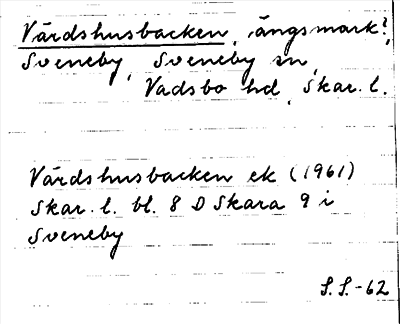 Värdshusbacken, ängsmark?,
Sveneby, Sveneby sn,
Vadsbo hd, Skar. l.
Värdshusbacken ek (1961)
Skar. l. bl. 8 D Skara 9 i
Sveneby
S.S.-62